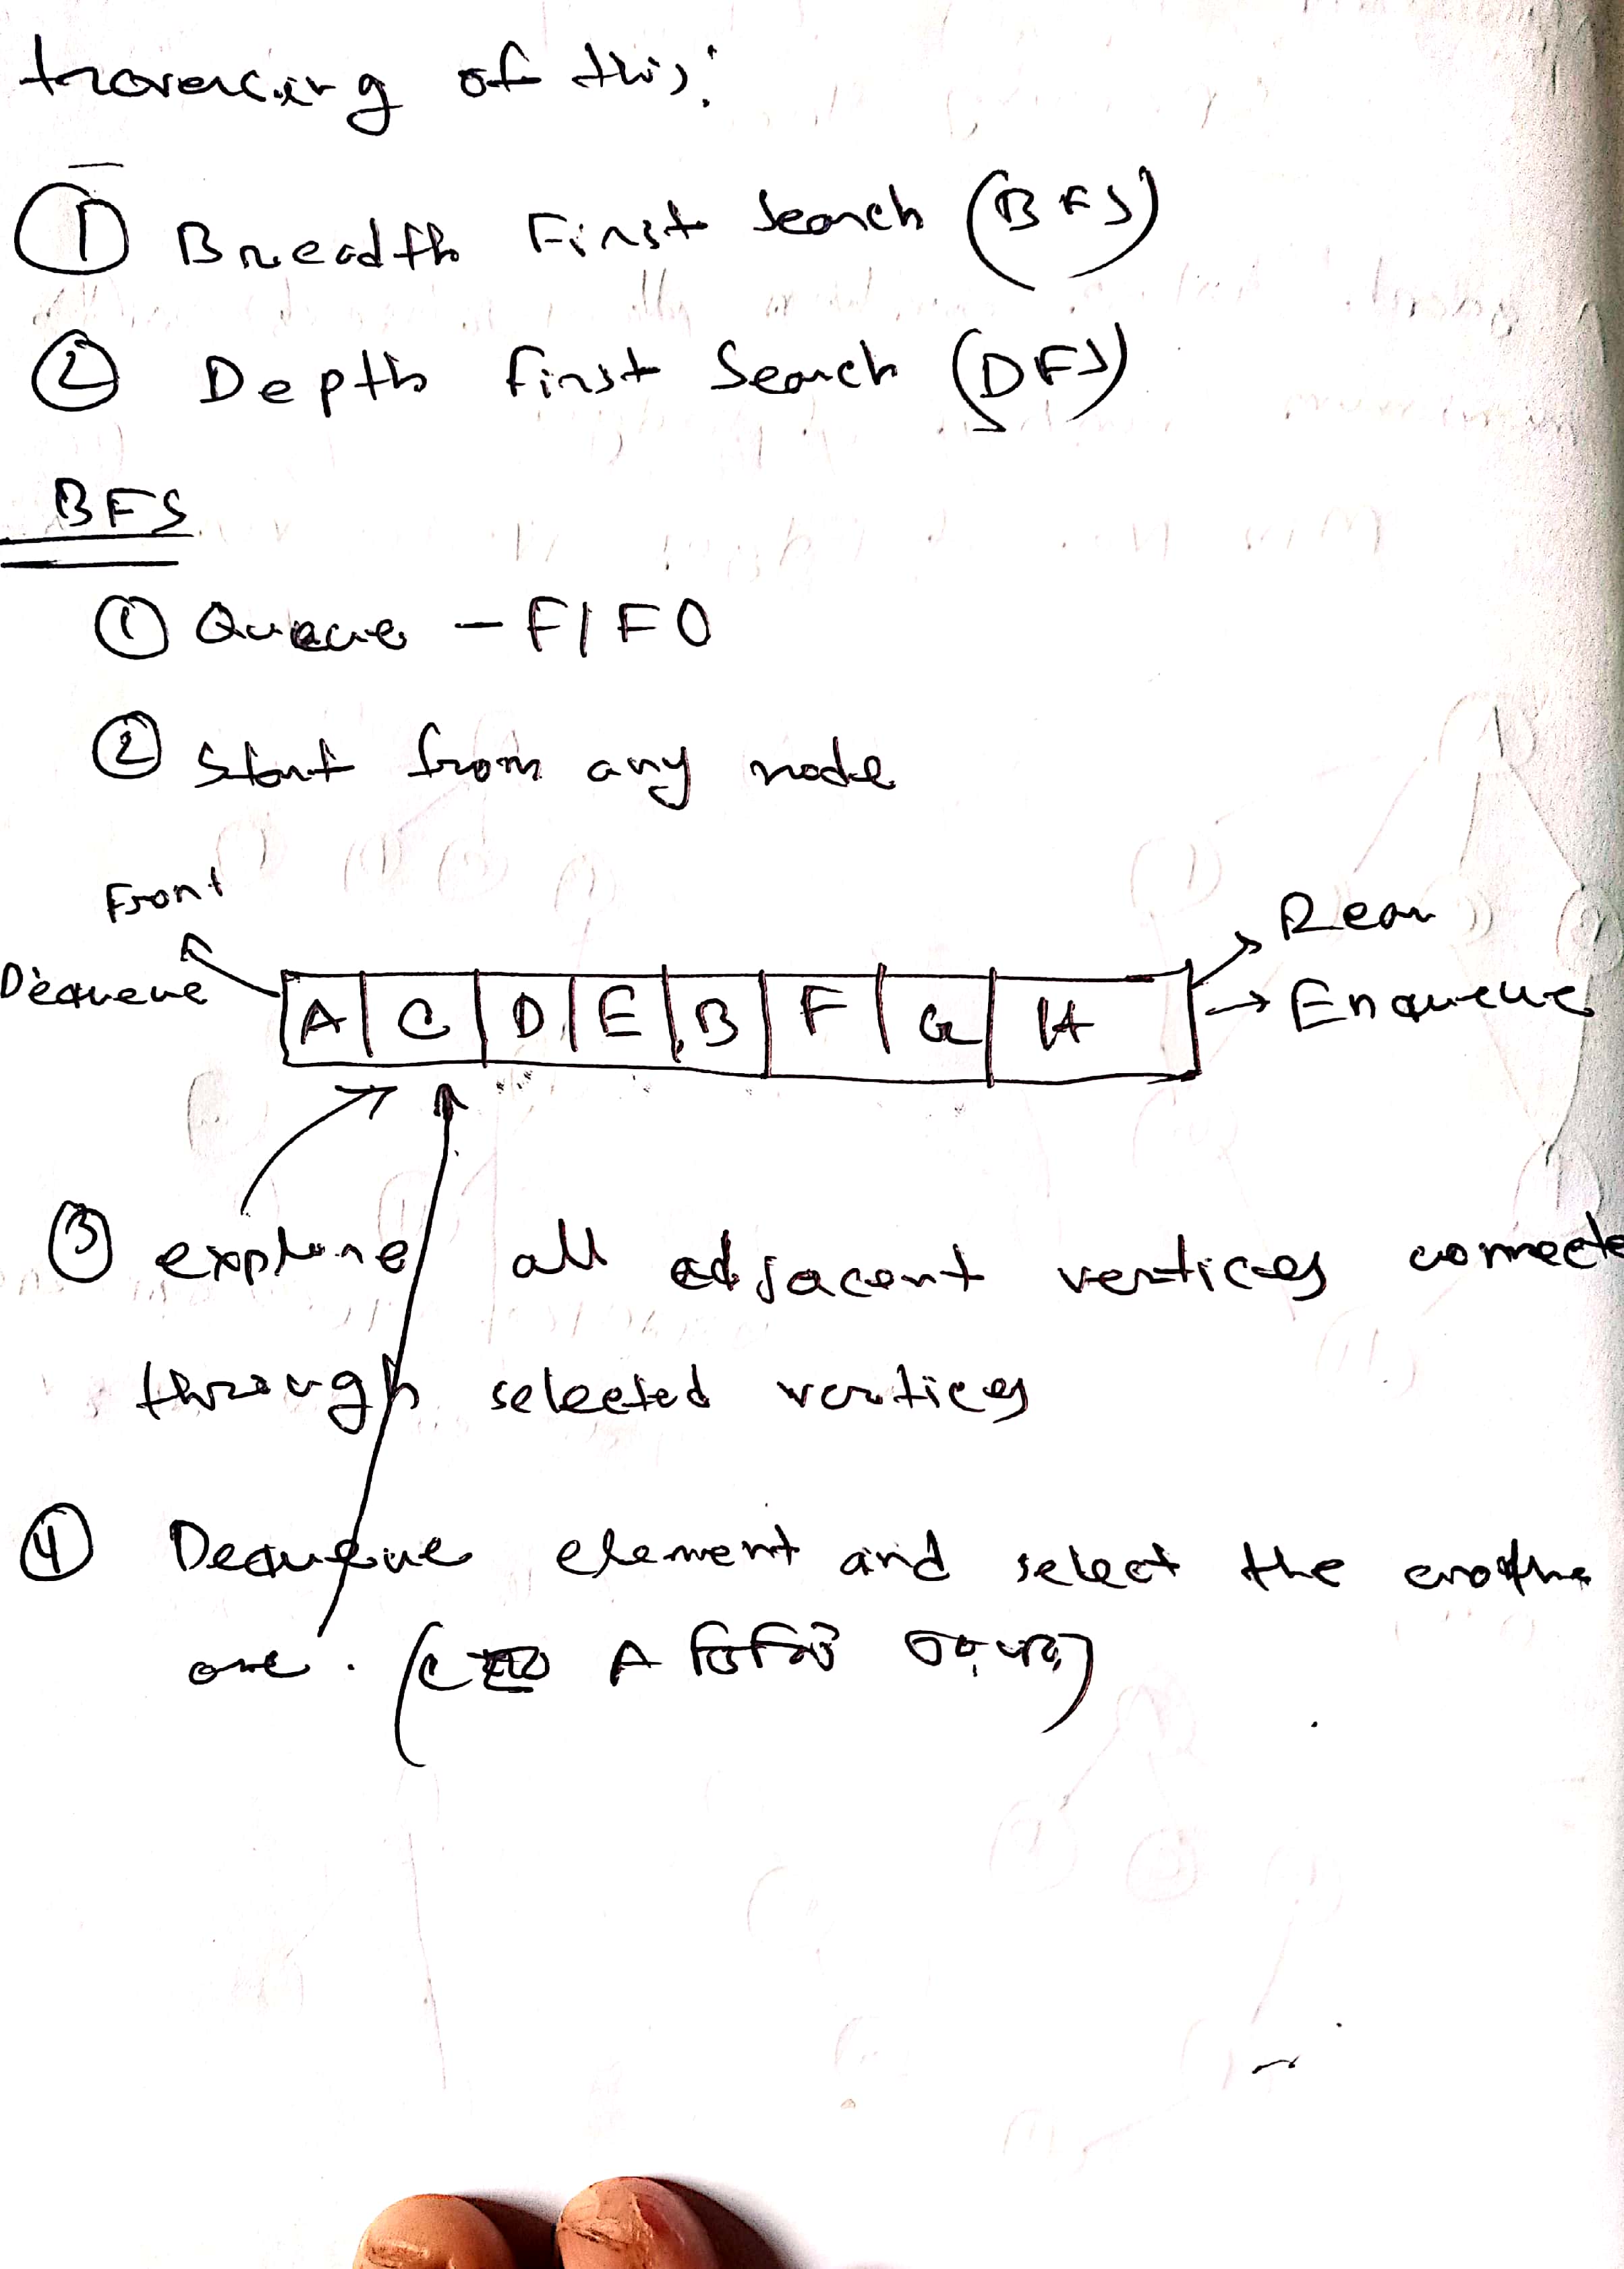 traversing of this:
① Breadth First Search (BFS)
② Depth first Search (DFS)
BFS
① Queue - FIFO
② Start from any node
Front
Rear
Dequeue
A C D E B F G H
→ Enqueue
③ explore all adjacent vertices connecte
through selected vertices
④ Dequeue element and select the another
one. (C A